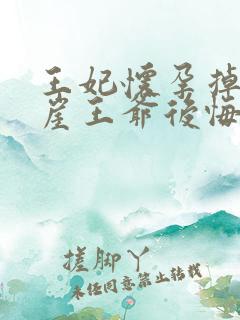 王妃怀孕掉
崖王爷后悔
搓脚丫
未经同意禁止转载